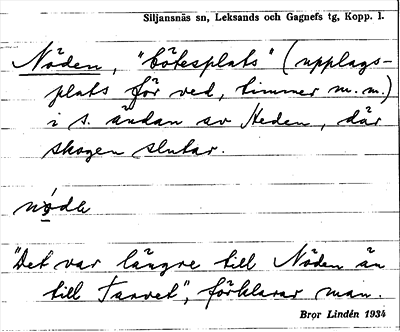 Siljansnäs sn, Leksands och Gagnefs tg, Kopp. l.
Nöden, "bötesplats" (upplags-
plats för ved, timmer m. m.)
i s. ändan av Heden, där
skogen slutar.
"Det var längre till Nöden än
till Tarvet", förklarar man.
Bror Lindén 1934